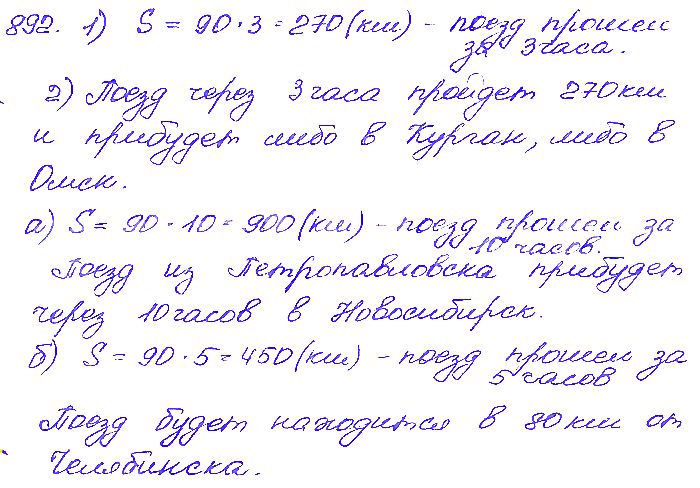 892. 1) S = 90 · 3 = 270 (км) - поезд прошел
за 3 часа.
2) Поезд через 3 часа пройдет 270 км
и прибудет либо в Курган, либо в
Омск.
а) S = 90 · 10 = 900 (км) - поезд прошел за
10 часов.
Поезд из Петропавловска прибудет
через 10 часов в Новосибирск.
б) S = 90 · 5 = 450 (км) - поезд прошел за
5 часов
Поезд будет находится в 80 км от
Челябинска.